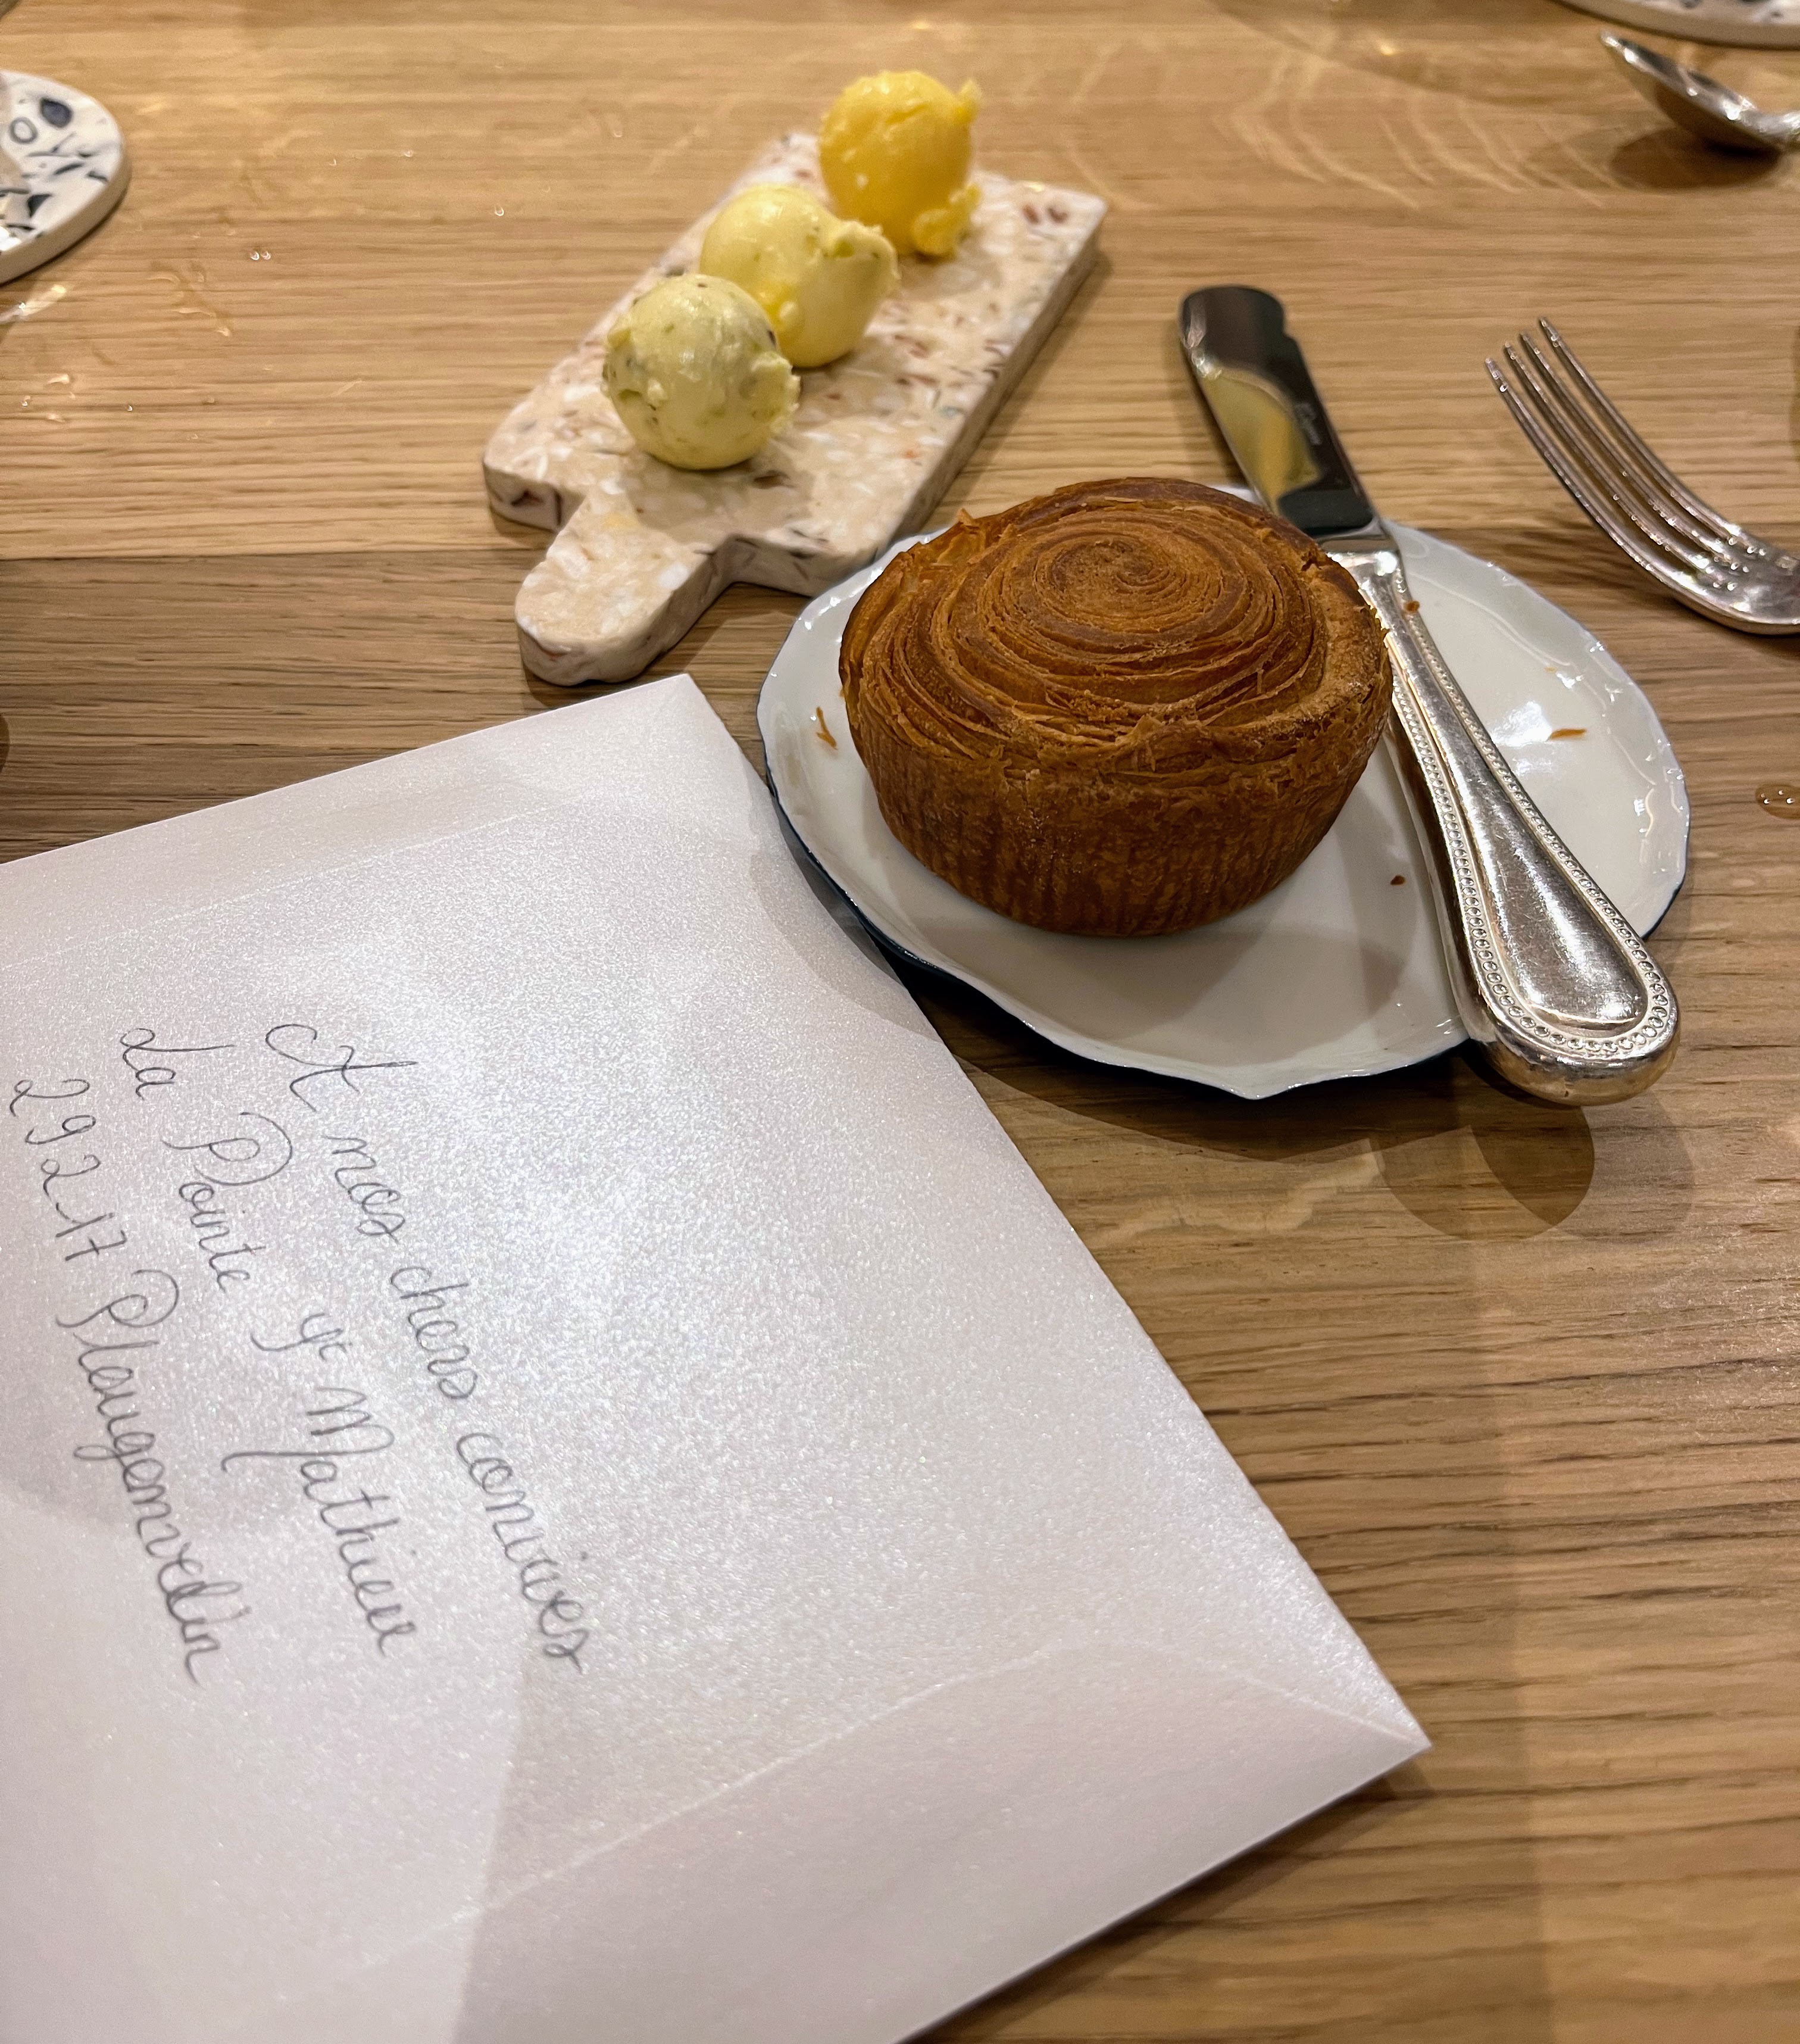 A nos chers convives
La Pointe St Mathieu
29217 Plougonvelin